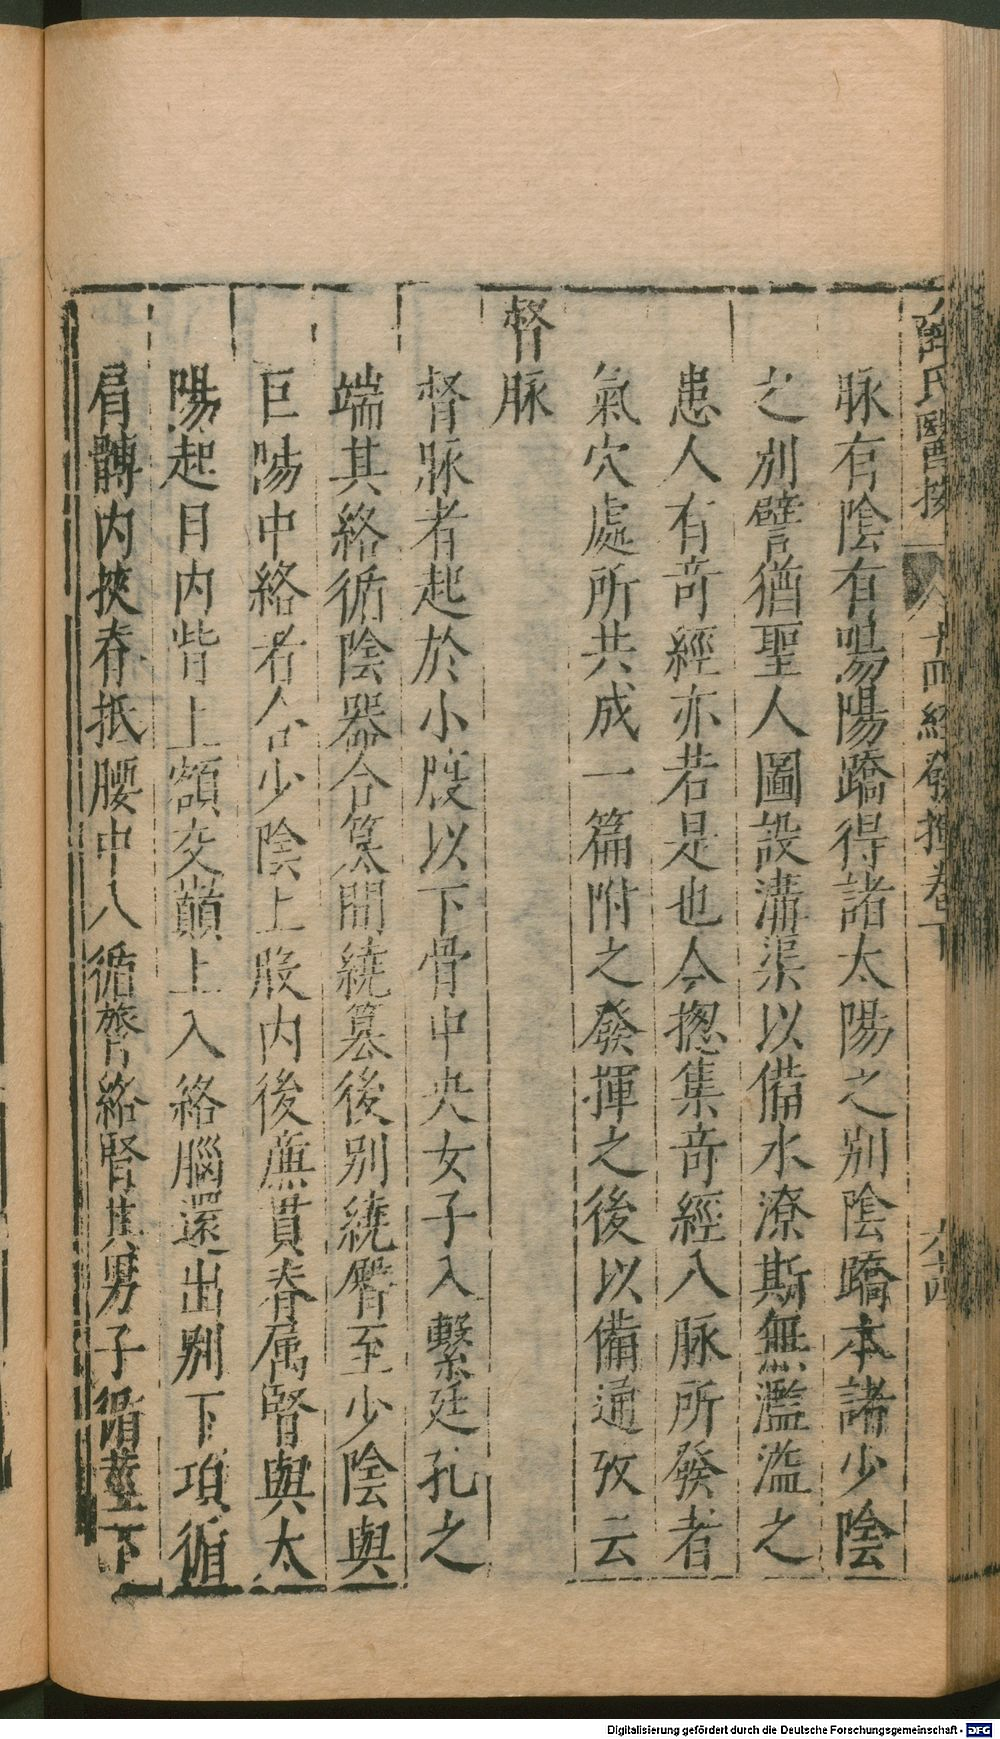 薛氏醫按 十四經發揮卷下 六十四
脉有陰有陽陽蹻得諸太陽之別陰蹻本諸少陰
之別譬猶聖人圖設溝渠以備水潦斯無濫溢之
患人有奇經亦若是也今揔集奇經八脉所發者
氣穴處所共成一篇附之發揮之後以備通攷云
督脉
督脉者起於小腹以下骨中央女子入繫廷孔之
端其絡循陰器合篡間繞篡後別繞臀至少陰與
巨陽中絡者合少陰上股內後廉貫脊属腎與太
陽起目內眥上額交巔上入絡腦還出別下項循
肩髆內挾脊抵腰中入循膂絡腎其男子循莖下
Digitalisierung gefördert durch die Deutsche Forschungsgemeinschaft - DFG